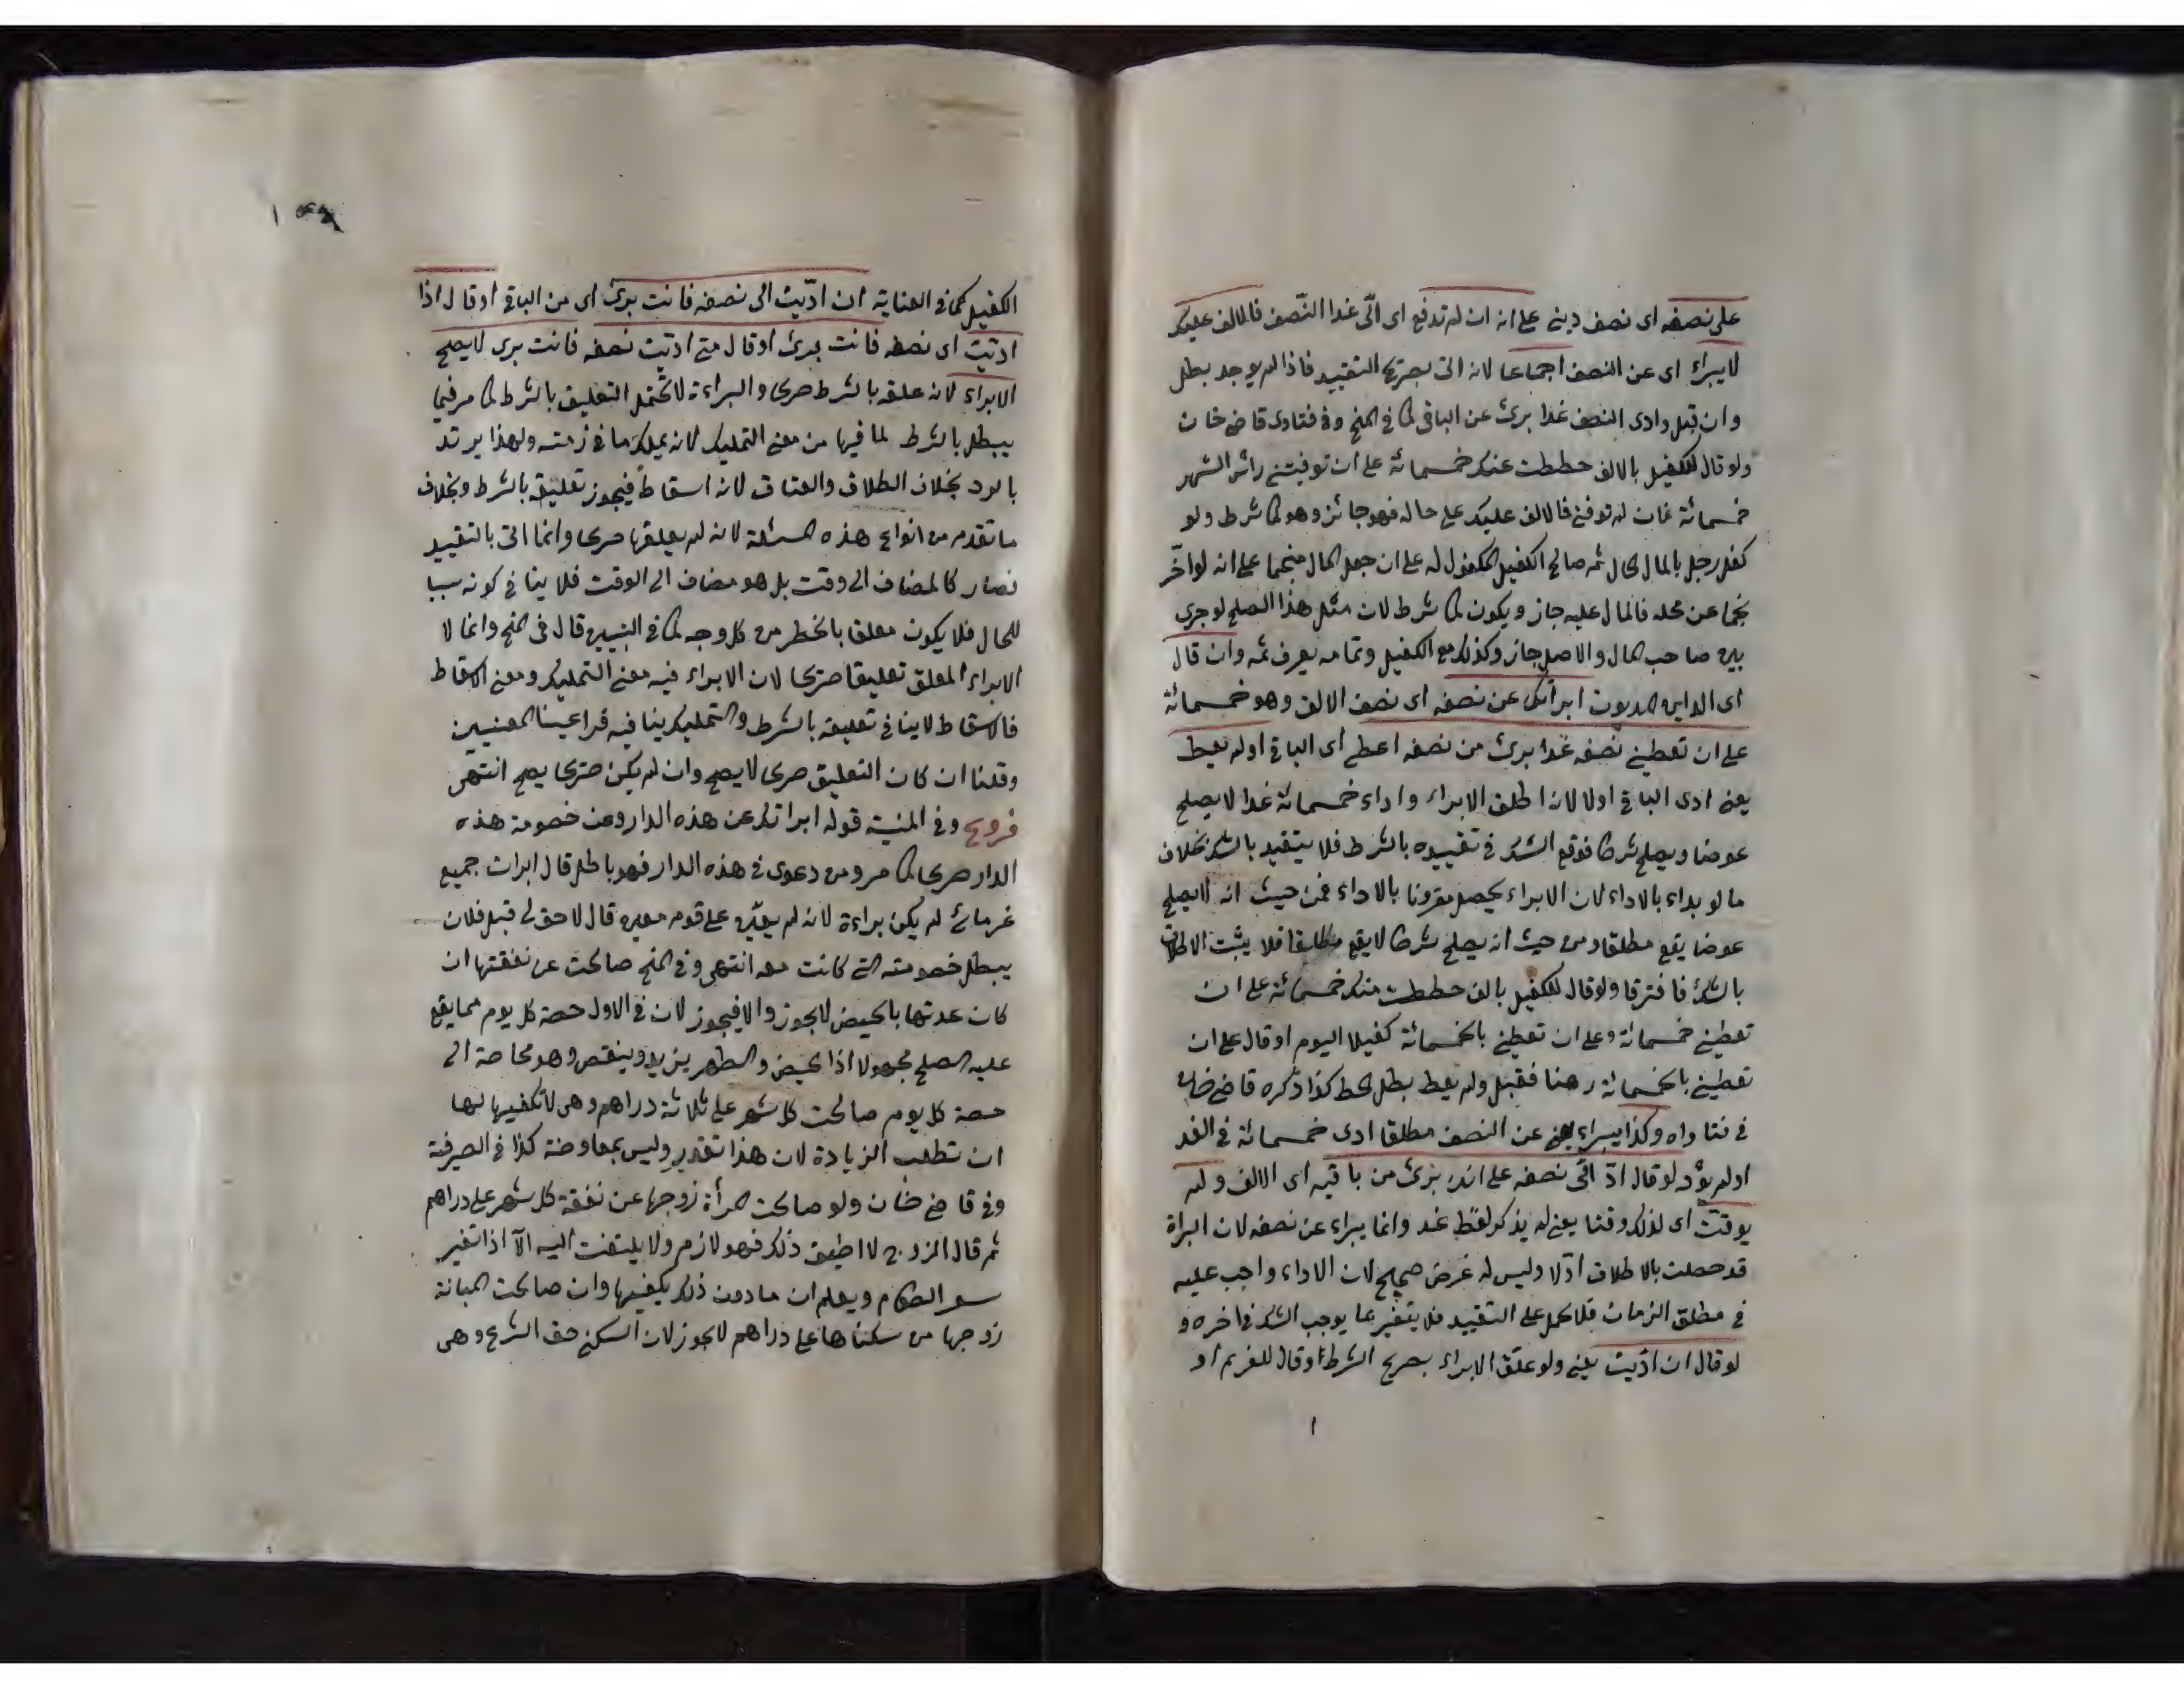 على نصفه اى نصف دينى على انه ان لم تدفع اى الّى غدا النّصف فالالف عليك
لا يبراء اى عن النصف اجماعا لانه اتى بصريح التقييد فاذا لم يوجد بطل
وان قبل وادى النصف غدا برئ عن الباقى كما فى المنح وفى فتاوى قاضى خان
ولو قال للكفيل بالالف حططت عنك خمسمائة على ان توفيتنى رأس الشهر
خمسمائة فان لم توفنى فالالف عليك على حاله فهو جائز وهو كما شرط ولو
كفل رجل بالمال الحال ثم صالح الكفيل المكفول له على ان جعل المال منجما على انه لو اخّر
نجما عن محله فالمال عليه جاز ويكون كما شرط لان مثل هذا الصلح لو جرى
بين صاحب المال والاصيل جاز وكذلك مع الكفيل وتمامه يعرف ثمه وان قال
اى الداين للمديون ابرأتك عن نصفه اى نصف الالف وهو خمسمائة
على ان تعطينى نصفه غدا برئ من نصفه اعطى اى الباقى او لم يعط
يعنى ادى الباقى اولا لانه اطلق الابراء واداء خمسمائة غدا لا يصلح
عوضا ويصلح شرطا فوقع الشك فى تقييده بالشرط فلا يتقيد بالشك بخلاف
ما لو بداء بالاداء لان الابراء يحصل مقرونا بالاداء فمن حيث انه لا يصلح
عوضا يقع مطلقا ومن حيث انه يصلح شرطا لا يقع مطلقا فلا يثبت الاطلاق
بالشك فافترقا ولو قال للكفيل بالف حططت منك خمسمائة على ان
تعطينى خمسمائة وعلى ان تعطينى بالخمسمائة كفيلا اليوم او قال على ان
تعطينى بالخمسمائة رهنا فقبل ولم يعط بطل الحط كذا ذكره قاضى خان
فى فتاواه وكذا يبراء يعنى عن النصف مطلقا ادى خمسمائة فى الغد
او لم يؤد لو قال ادّ الّى نصفه على انك برئ من باقيه اى الالف ولم
يوقت اى لذلك وقتا يعنى لم يذكر لفظ غد وانما يبراء عن نصفه لان البراة
قد حصلت بالاطلاق اوّلا وليس له غرض صحيح لان الاداء واجب عليه
فى مطلق الزمان فلا يحمل على التقييد فلا يتغير بما يوجب الشك فى اخره و
لو قال ان ادّيت يعنى ولو علّق الابراء بصريح الشرط او قال للغريم او
الكفيل كما فى العناية ان ادّيت الى نصفه فانت برئ اى من الباقى او قال اذا
اديت اى نصفه فانت برئ او قال متى اديت نصفه فانت برى لا يصلح
الابراء لانه علقه بالشرط صريحا والبراءة لا تحتمل التعليق بالشرط كما مر فيما
يبطل بالشرط لما فيها من معنى التمليك لانه يملك ما فى زمته ولهذا يرتد
بالرد بخلاف الطلاق والعتاق لانه اسقاط فيجوز تعليقه بالشرط وبخلاف
ما تقدم من انواع هذه المسئلة لانه لم يعلقها صريحا وانما اتى بالتقييد
فصار كالمضاف الى وقت بل هو مضاف الى الوقت فلا ينافى كونه سببا
للحال فلا يكون معلقا بالخطر من كل وجه كما فى التبيين قال فى المنح وانما لا
الابراء المعلق تعليقا صريحا لان الابراء فيه معنى التمليك ومعنى الاسقاط
فالاسقاط لا ينافى تعليقه بالشرط والتمليك ينافيه فراعينا المعنيين
وقلنا ان كان التعليق صريحا لا يصح وان لم يكن صريحا يصح انتهى
فروع وفى المنية قوله ابراتك عن هذه الدار وعن خصومة هذه
الدار صريحا كما مر ومن دعوى فى هذه الدار فهو باطل قال ابرات جميع
غرمائى لم يكن براءة لانه لم يعيّن على قوم معين قال لا حق لى قبل فلان
يبطل خصومته التى كانت معه انتهى وفى المنح صالحت عن نفقتها ان
كان عدتها بالحيض لا يجوز والا فيجوز لان فى الاول حصة كل يوم مما يقع
عليه الصلح مجهولا اذا الحيض والطهر يزيد وينقص وهو محاصة الى
حصة كل يوم صالحت كل شهر على ثلاثة دراهم وهى لا تكفيها لها
ان تطلب الزيادة لان هذا تقدير وليس بمعاوضة كذا فى الصيرفية
وفى قاضى خان ولو صالحت المرأة زوجها عن نفقة كل شهر على دراهم
ثم قال الزوج لا اطيق ذلك فهو لازم ولا يلتفت اليه الّا اذا تغير
سعر الطعام ويعلم ان ما دون ذلك يكفيها وان صالحت المبانة
زوجها من سكناها على دراهم لا يجوز لان السكنى حق الشرع وهى